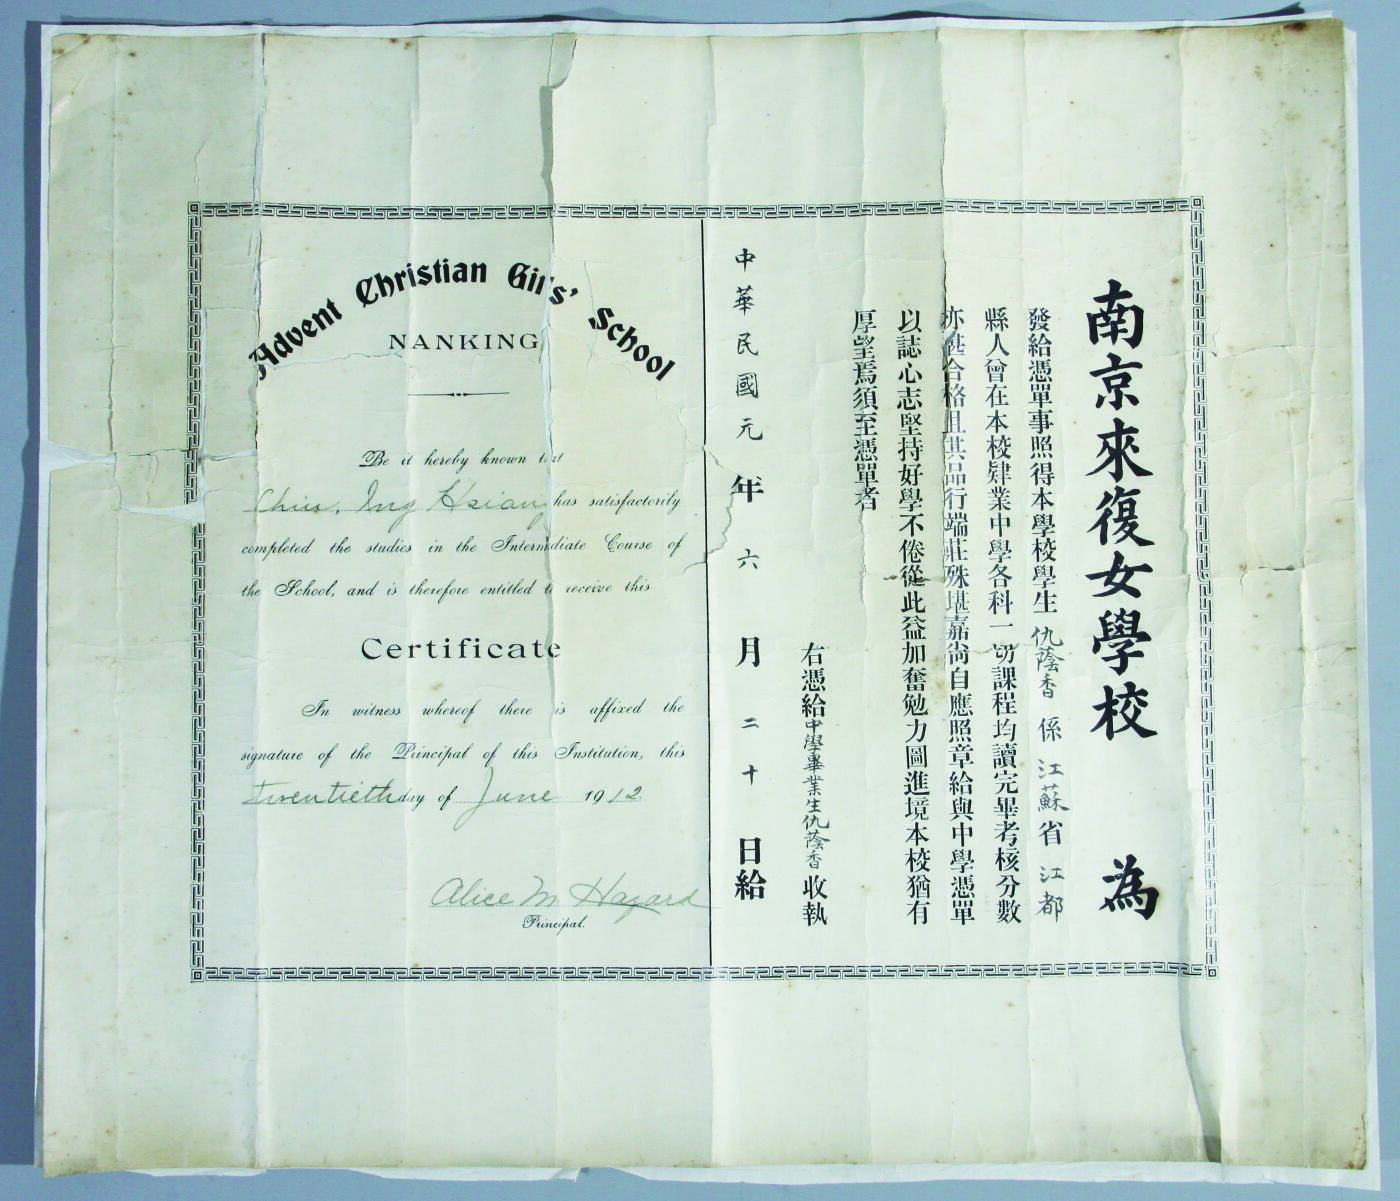 Advent Christian Girls' School
NANKING
Be it hereby known that
Chiu, Ing Hsiang has satisfactorily
completed the studies in the Intermediate Course of
the School, and is therefore entitled to receive this
Certificate
In witness whereof there is affixed the
signature of the Principal of this Institution, this
Twentieth day of June 1912
Alice M Hazard
Principal.
南京來復女學校 為
發給憑單事照得本學校學生仇蔭香係江蘇省江都
縣人曾在本校肄業中學各科一切課程均讀完畢考核分數
亦堪合格且其品行端莊殊堪嘉尚自應照章給與中學憑單
以誌心志堅持好學不倦從此益加奮勉力圖進境本校猶有
厚望焉須至憑單者
右憑給中學畢業生仇蔭香收執
中華民國元年六月二十日給